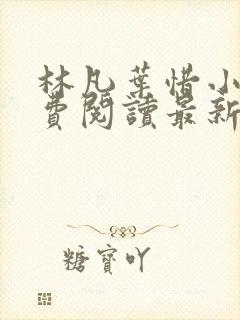 林凡葉惜小
費閱讀最新
糖寶吖